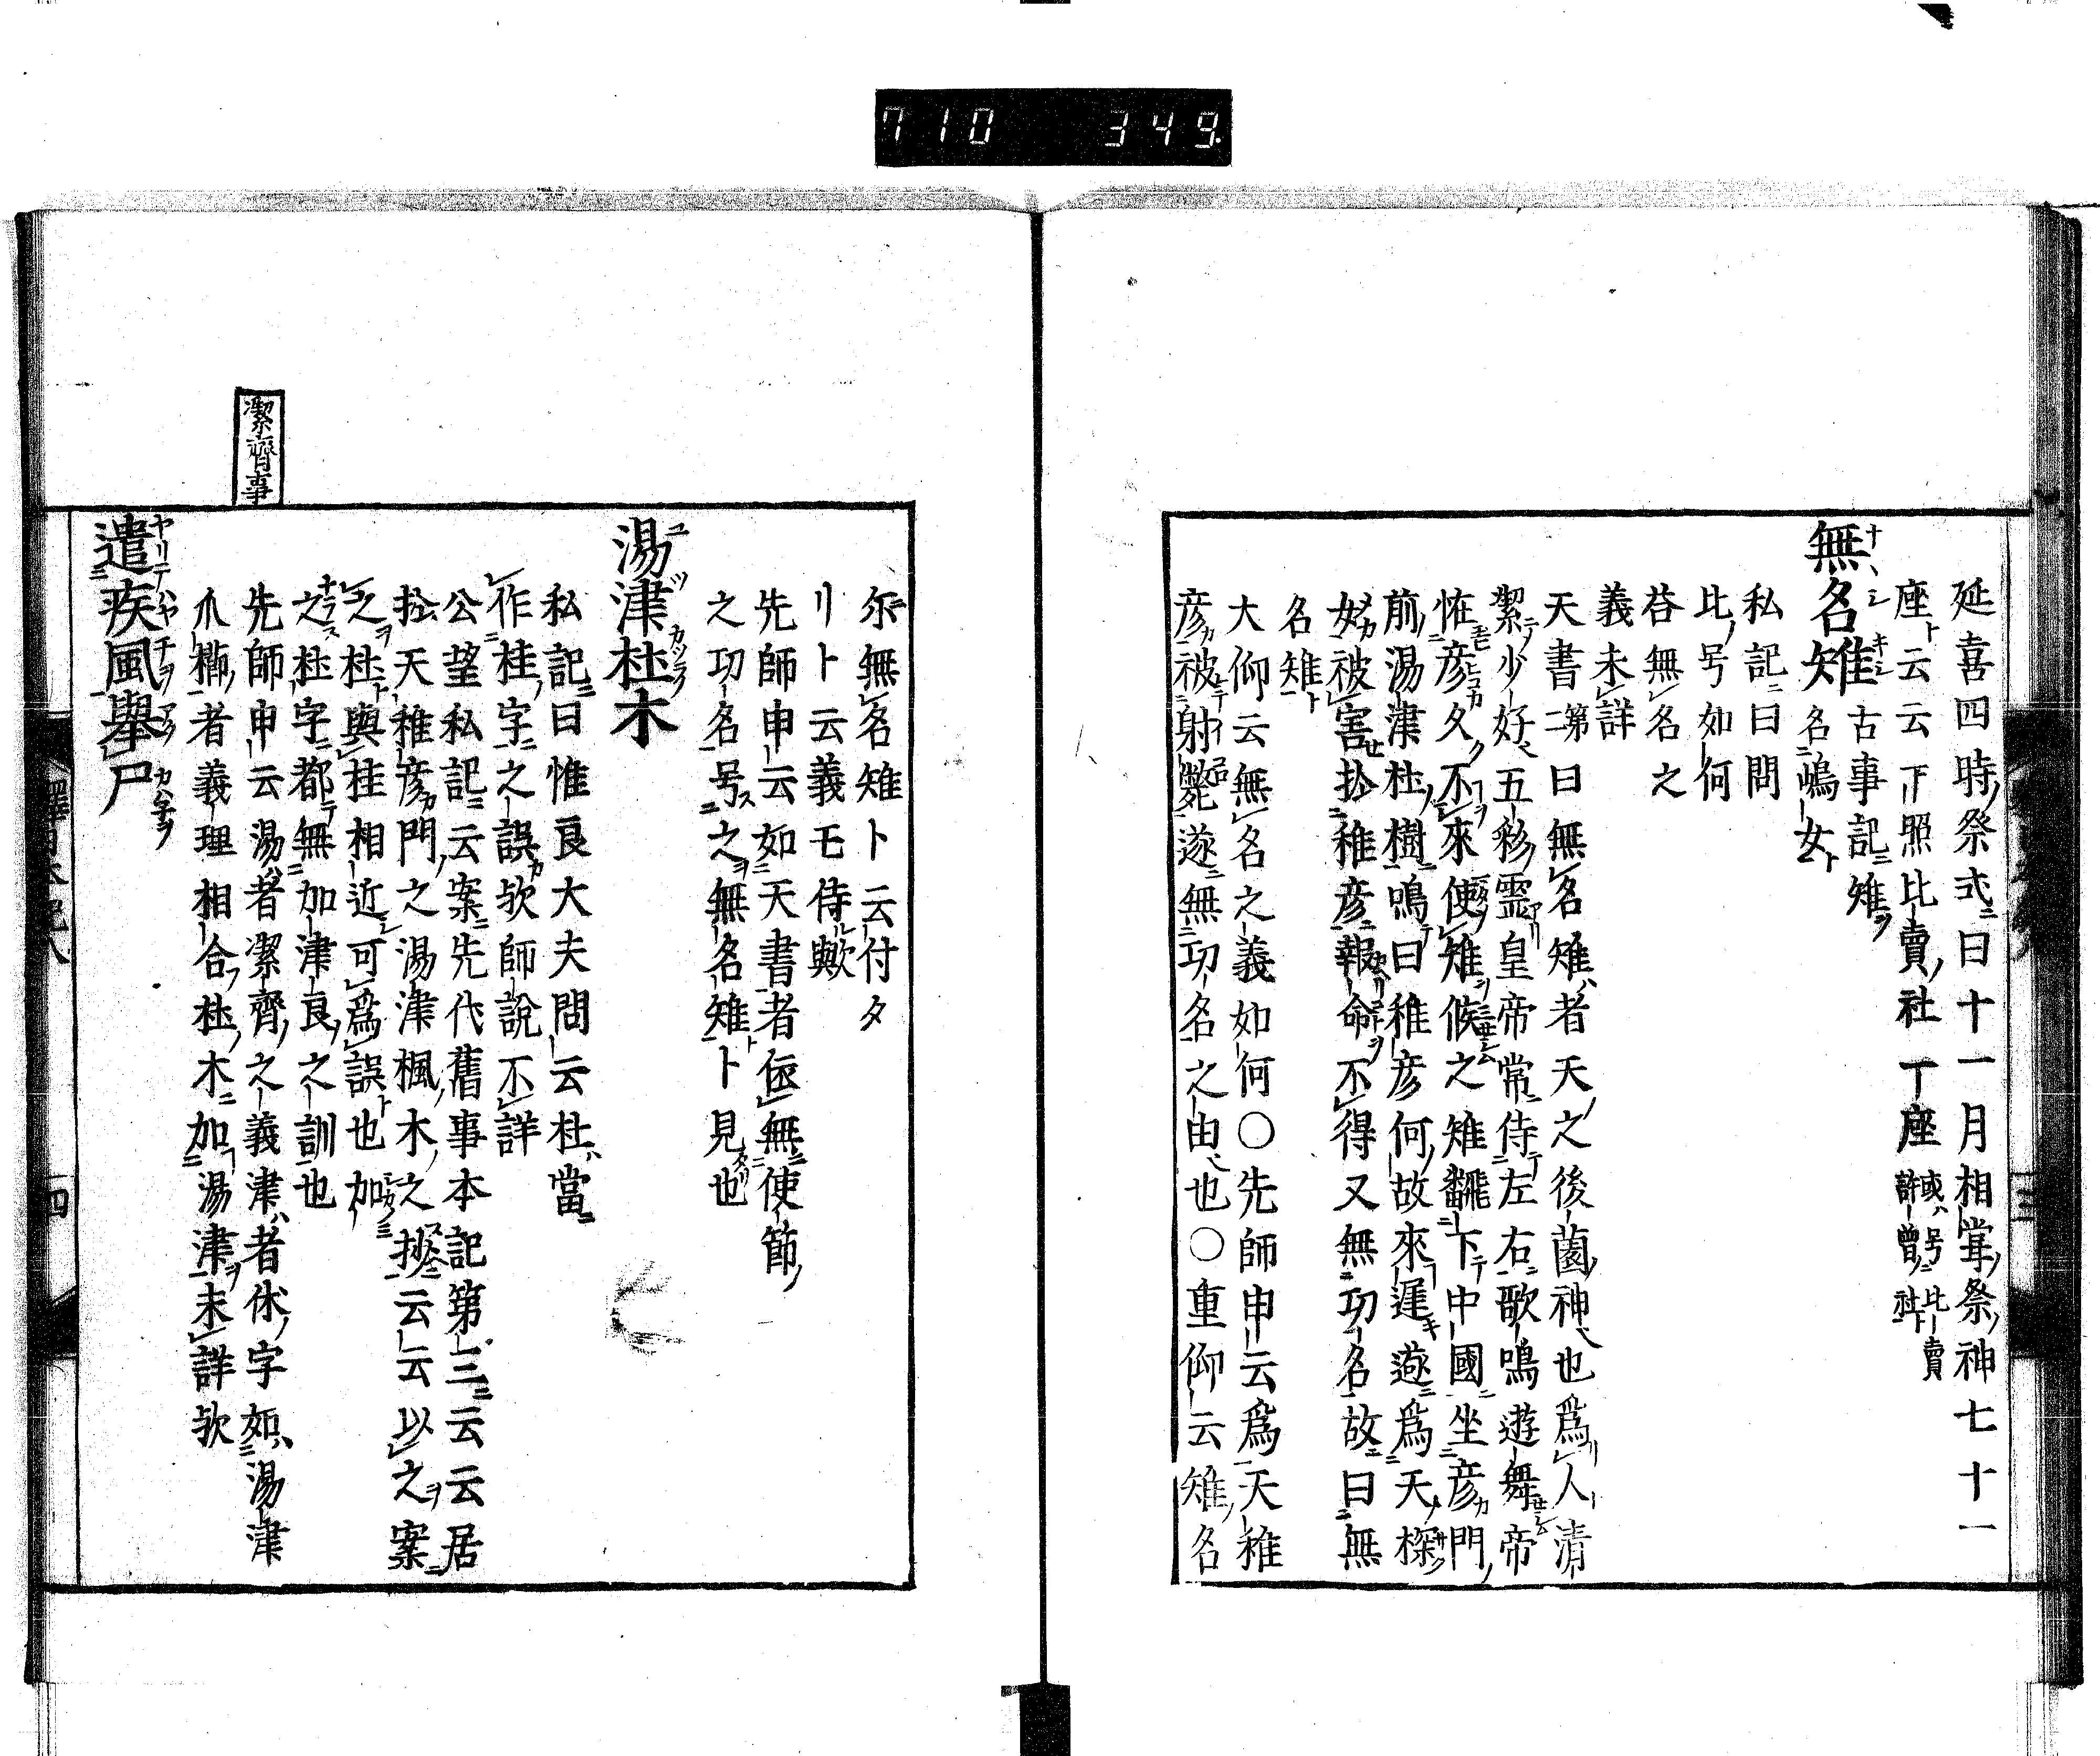 710 349
延喜四時祭式曰十一月相甞祭神七十一
座云云下照比賣社一座或号比賣許曾社
無名雉古事記雉名鳴女
私記曰問
此号如何
荅無名之
義未詳
天書第二曰無名雉者天之後薗神也爲人清
絜少好五彩靈皇帝常侍左右歌鳴遊舞帝
恠彦久不來使雉候之雉飜下中國坐彦門
前湯津杜樹鳴曰稚彦何故來遲遂爲天探
女被害於稚彦報命不得又無功名故曰無
名雉
大仰云無名之義如何〇先師申云爲天稚
彦被射斃遂無功名之由也〇重仰云雉名
尓無名雉卜云付タ
リト云義モ侍歟
先師申云如天書者依無使節
之功名号之無名雉卜見也
湯津杜木
私記曰惟良大夫問云杜當
作桂字之誤欤師說不詳
公望私記云案先代舊事本記第三云云居
於天稚彦門之湯津楓木之抄云云以之案
之杜與桂相近可爲誤也加
之杜字都無加津良之訓也
潔齊事
先師申云湯者潔齊之義津者休字如湯津
爪櫛者義理相合杜木加湯津未詳欤
遣疾風舉尸
四